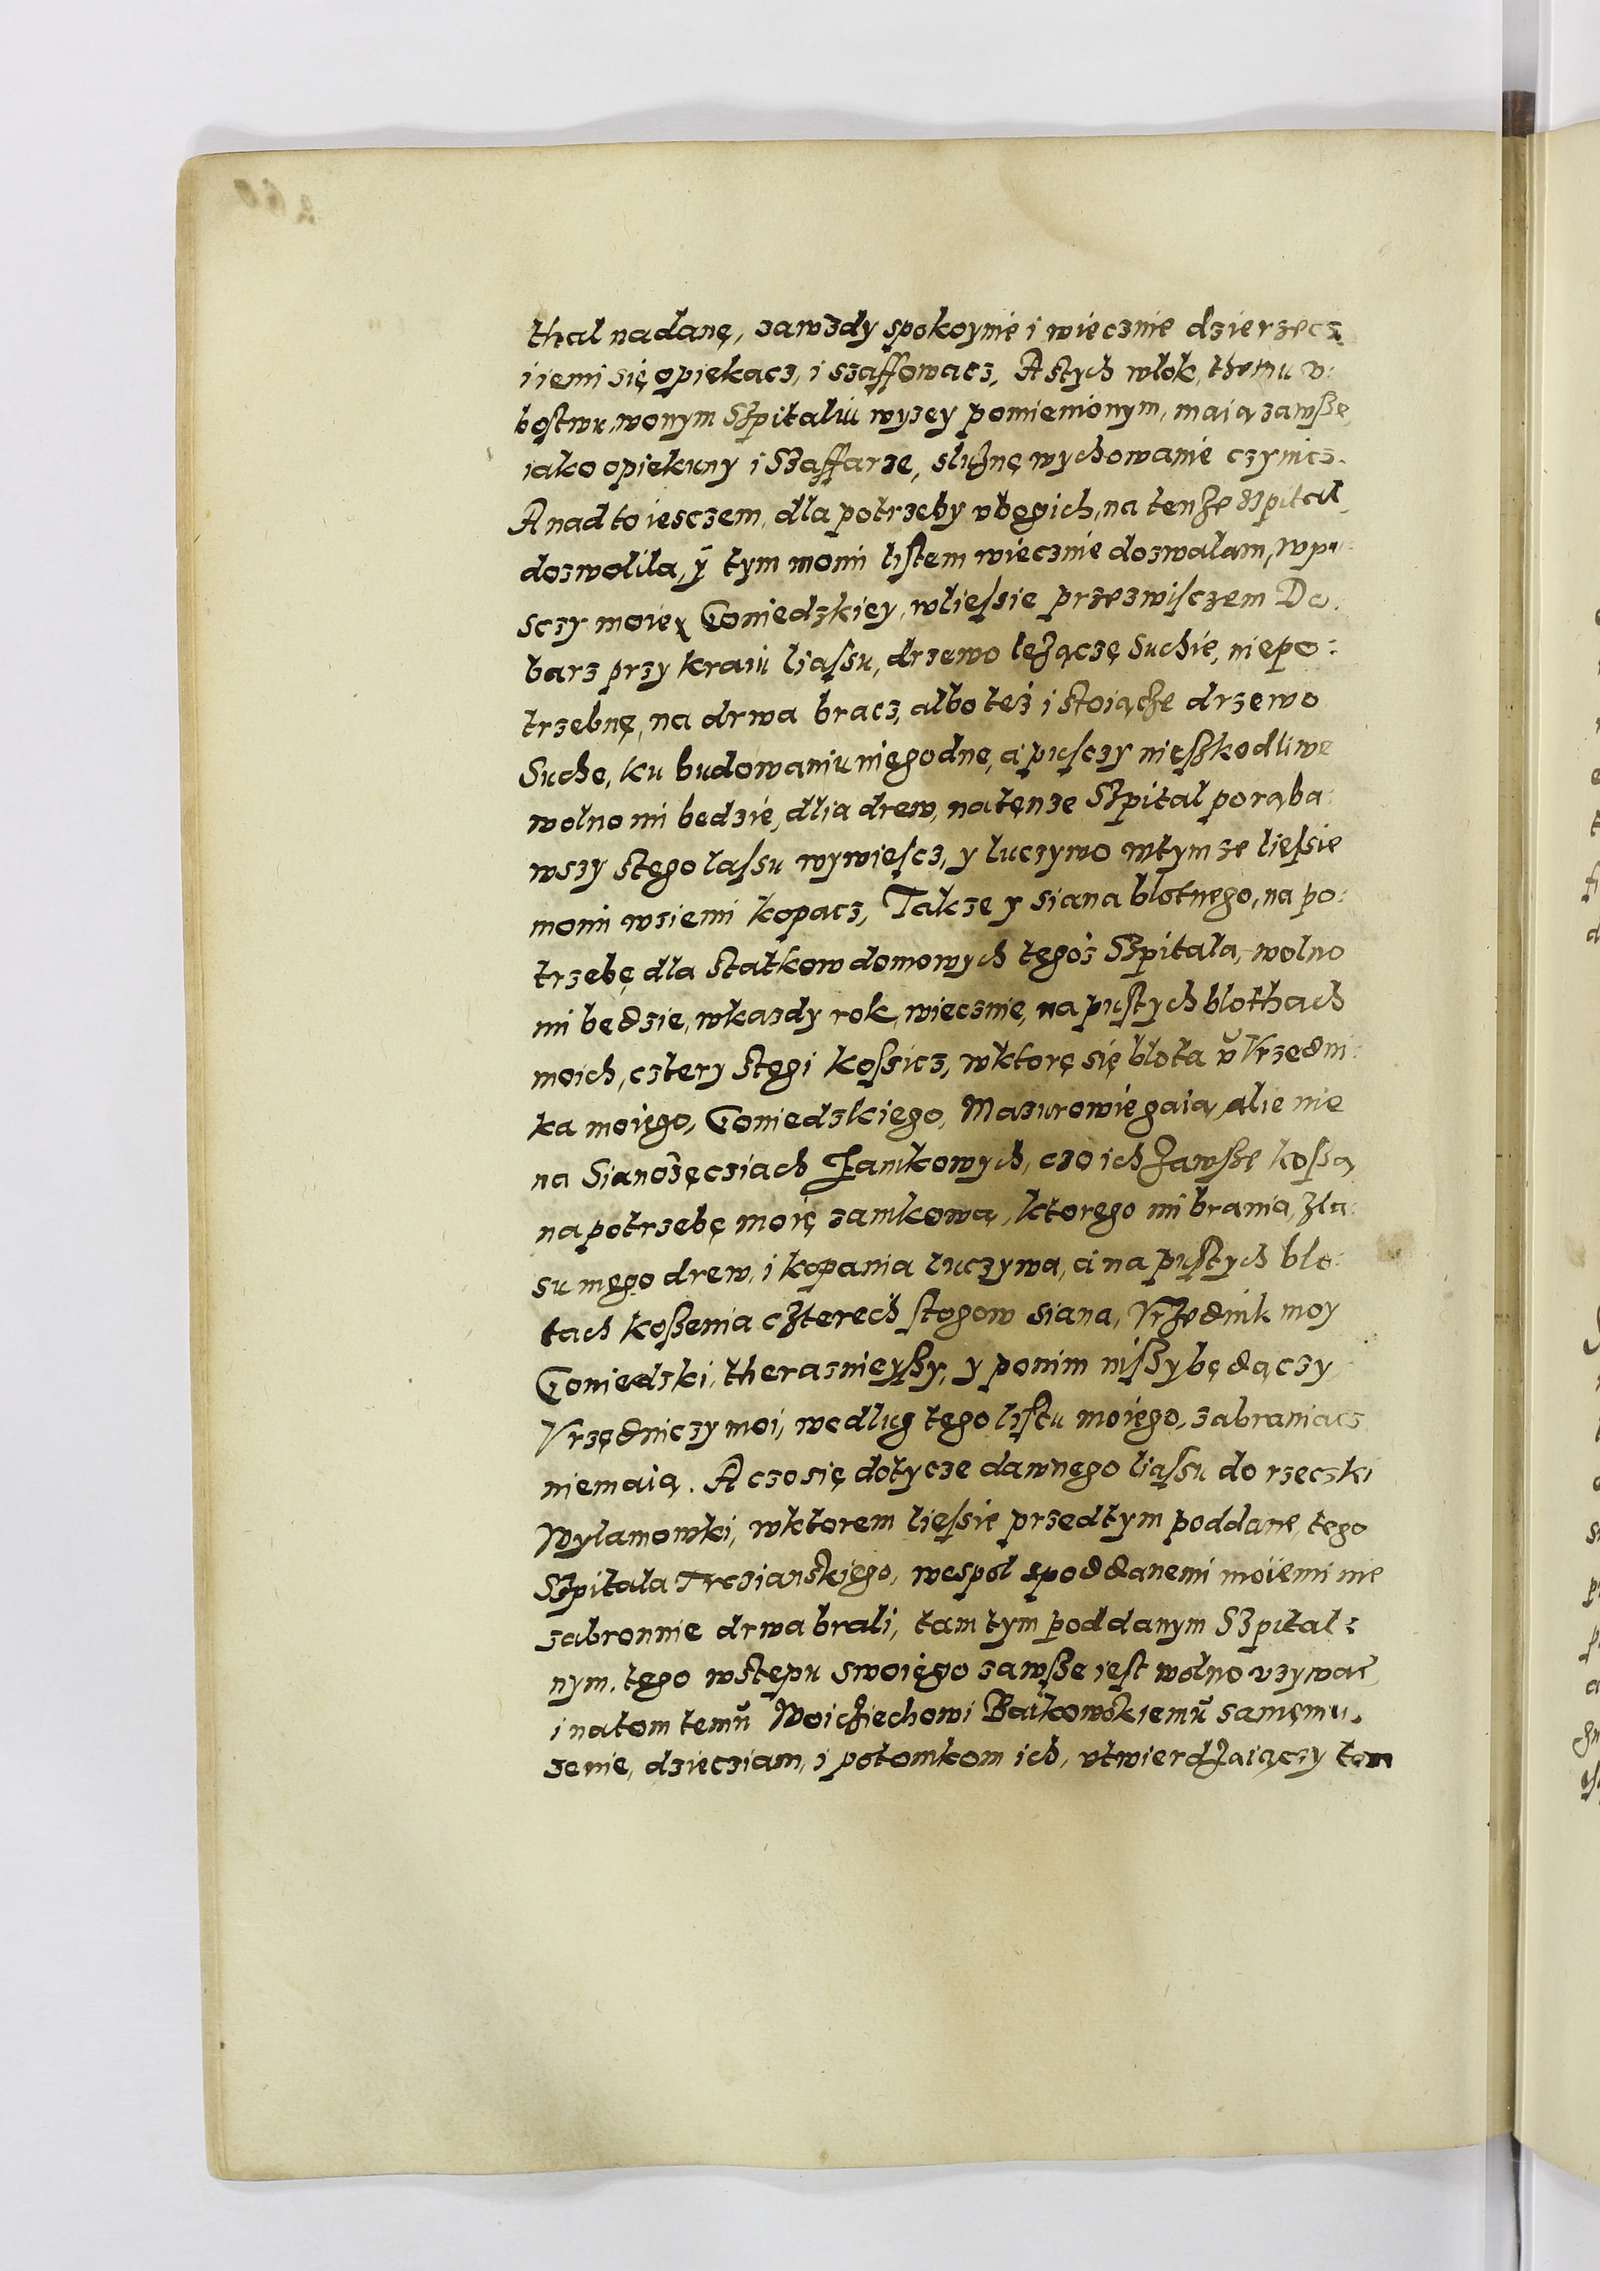 thal nadanę, zawżdy spokoynie i wiecznie dzierzecz
i iemi się opiekacz, i szaffowacz, A stych wlok, themu v:
bostwu, wonym Szpitaliu wyzey pomienionym, maią zawsze
iako opiekuny i Szaffarze, służnę wychowanie czynicz.
A nad to iesczem, dla potrzeby vbogich, na tenże szpital
dozwolila, ÿ tym moim listem wiecznie dozwalam, wpu
sczy moiey Goniedzkiey, wliessie przezwisczem Do:
barz przy kraiu liassu, drzewo leżączę Suchie, niepo:
trzebnę, na drwa bracz, albo też i stoiącze drzewo
Suche, ku budowaniu niegodne, a pusczy nieszkodliwe
wolno mi bedzie, dlia drew, na tenze Szpital porąba:
wszy stego lassu wywiescz, y luczywo wtymze liessie
moim wziemi kopacz, Takze y siana blotnego, na po:
trzebę dla statkow domowych tegoż Szpitala, wolno
mi bedzie, wkazdy rok, wiecznie, na pustych blothach
moich, cztery stęgi kossicz, wktorę się blota v Vrzedni:
ka moięgo, Goniedzkiego, Mazurowie gaią, alie nie
na Sianożęcziach Zamkowych, czo ich zawszę koszą
na potrzebę moię zamkową, ktorego mi brania, zla:
su mego drew, i kopania luczywa, a na pustych blo:
tach koszenia czterech stogow siana, Vrzednik moy
Goniedzki, theraznieyszy, y ponim niszy będączy
Vrzędniczy moi, wedlug tego listu moiego, zabraniacz
niemaią. A czo się dotycze dawnego liassu do rzeczki
Wylamowki, wktorem liessie przedtym poddane, tego
Szpitala Trczianskiego, wespol spoddanemi moiemi nie
zabronnie drwa brali, tam tym poddanym Szpital:
nym, tego wstępu swoiego zawsze iest wolno vzywać
i natom temu Woicziechowi Baikowskiemu samemu,
zenie, dziecziam, i potomkom ich, vtwierdzaiączy tem